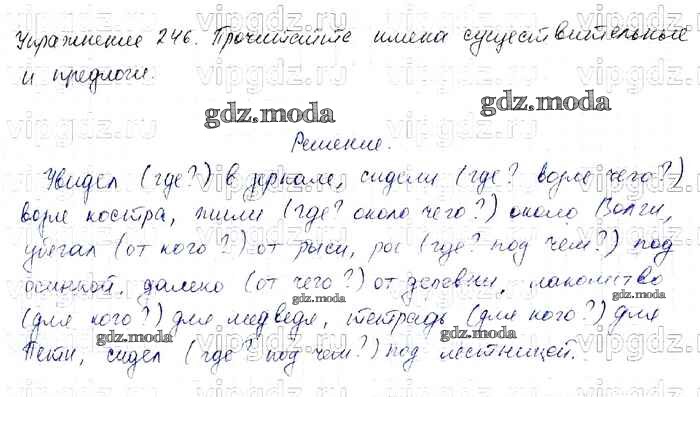 Упражнение 246. Прочитайте имена существительные
и предлоги.
gdz.moda
gdz.moda
Решение.
Увидел (где?) в зеркале, сидели (где? возле чего?)
возле костра, жили (где? около чего?) около Волги,
убегал (от кого?) от рыси, рос (где? под чем?) под
осинкой, далеко (от чего?) от деревни, лакомство
gdz.moda
gdz.moda
(для кого?) для медведя, тетрадь (для кого?) для
gdz.moda
gdz.moda
Пети, сидел (где? под чем?) под лестницей.